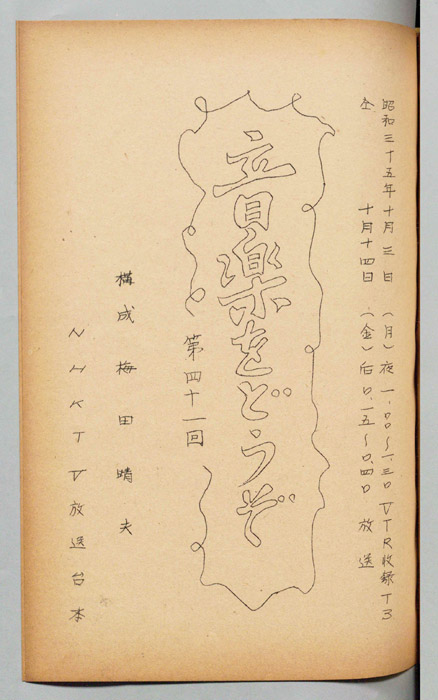 昭和三十五年十月三日(月)夜一、〇〇〜一、三〇VTR収録T3
仝 十月十四日(金)后〇、一五〜〇、四〇 放送
音楽をどうぞ
第四十一回
構成 梅田晴夫
NHKTV放送台本